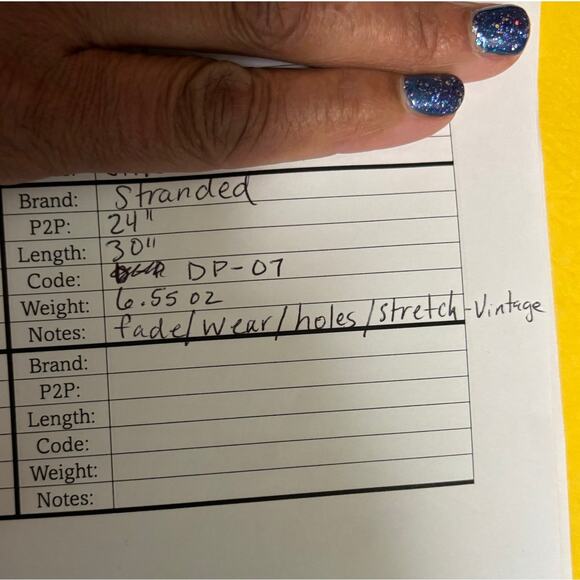 Brand: Stranded
P2P: 24"
Length: 30"
Code: DP-07
Weight: 6.55 oz
Notes: fade/wear/holes/stretch-Vintage
Brand:
P2P:
Length:
Code:
Weight:
Notes: